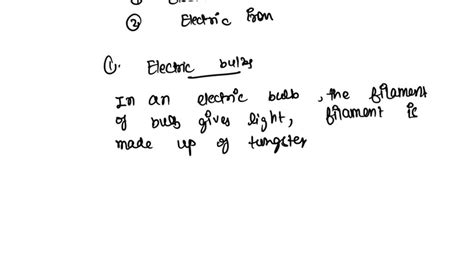 ② Electric Iron
①. Electric bulbs
In an electric bulb, the filament
of bulb gives light, filament is
made up of tungsten